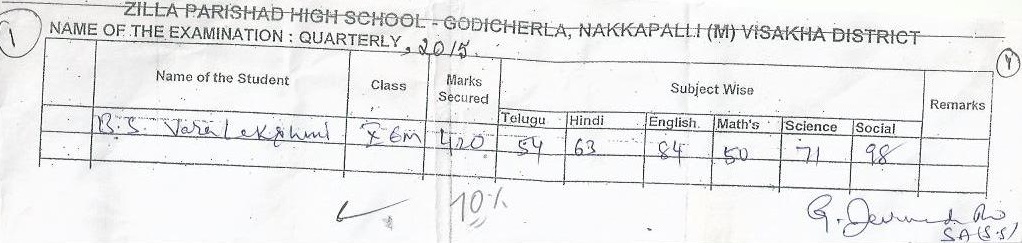 ZILLA PARISHAD HIGH SCHOOL - GODICHERLA, NAKKAPALLI (M) VISAKHA DISTRICT
1 NAME OF THE EXAMINATION : QUARTERLY, 2015.
Name of the Student Class Marks Secured Subject Wise Remarks
Telugu Hindi English Math's Science Social
B.S. Vara Lakshmi X EM 420 54 63 84 50 71 98
10%
SA(S.S)